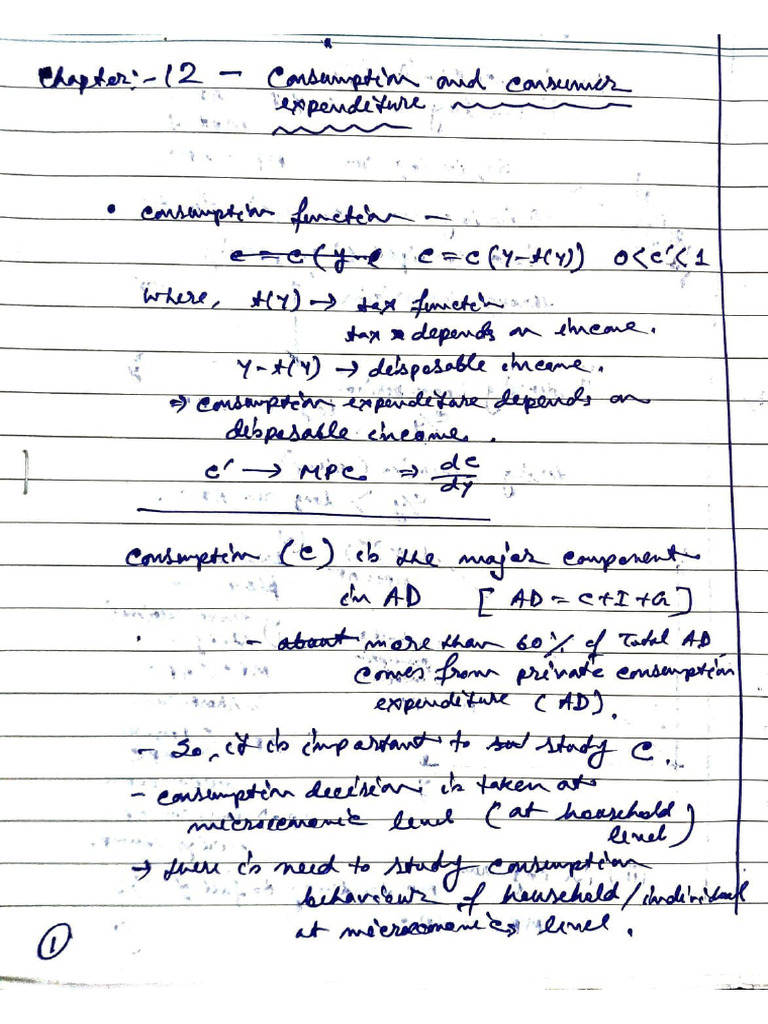 Chapter:-12 - Consumption and consumer
expenditure
• Consumption function -
c = c(y-t C = C(Y-t(Y)) 0<c'<1
where, t(Y) → tax function
tax depends on income.
Y-t(Y) → disposable income.
⇒ consumption expenditure depends on
disposable income.
c' → MPC ⇒ dc/dy
Consumption (C) is the major component
in AD [AD = C+I+G]
- about more than 60% of Total AD
comes from private consumption
expenditure (AD).
- So, it is important to study C.
- consumption decision is taken at
level (at household
level)
→ there is need to study consumption
behaviour of household/individual
at level.
1